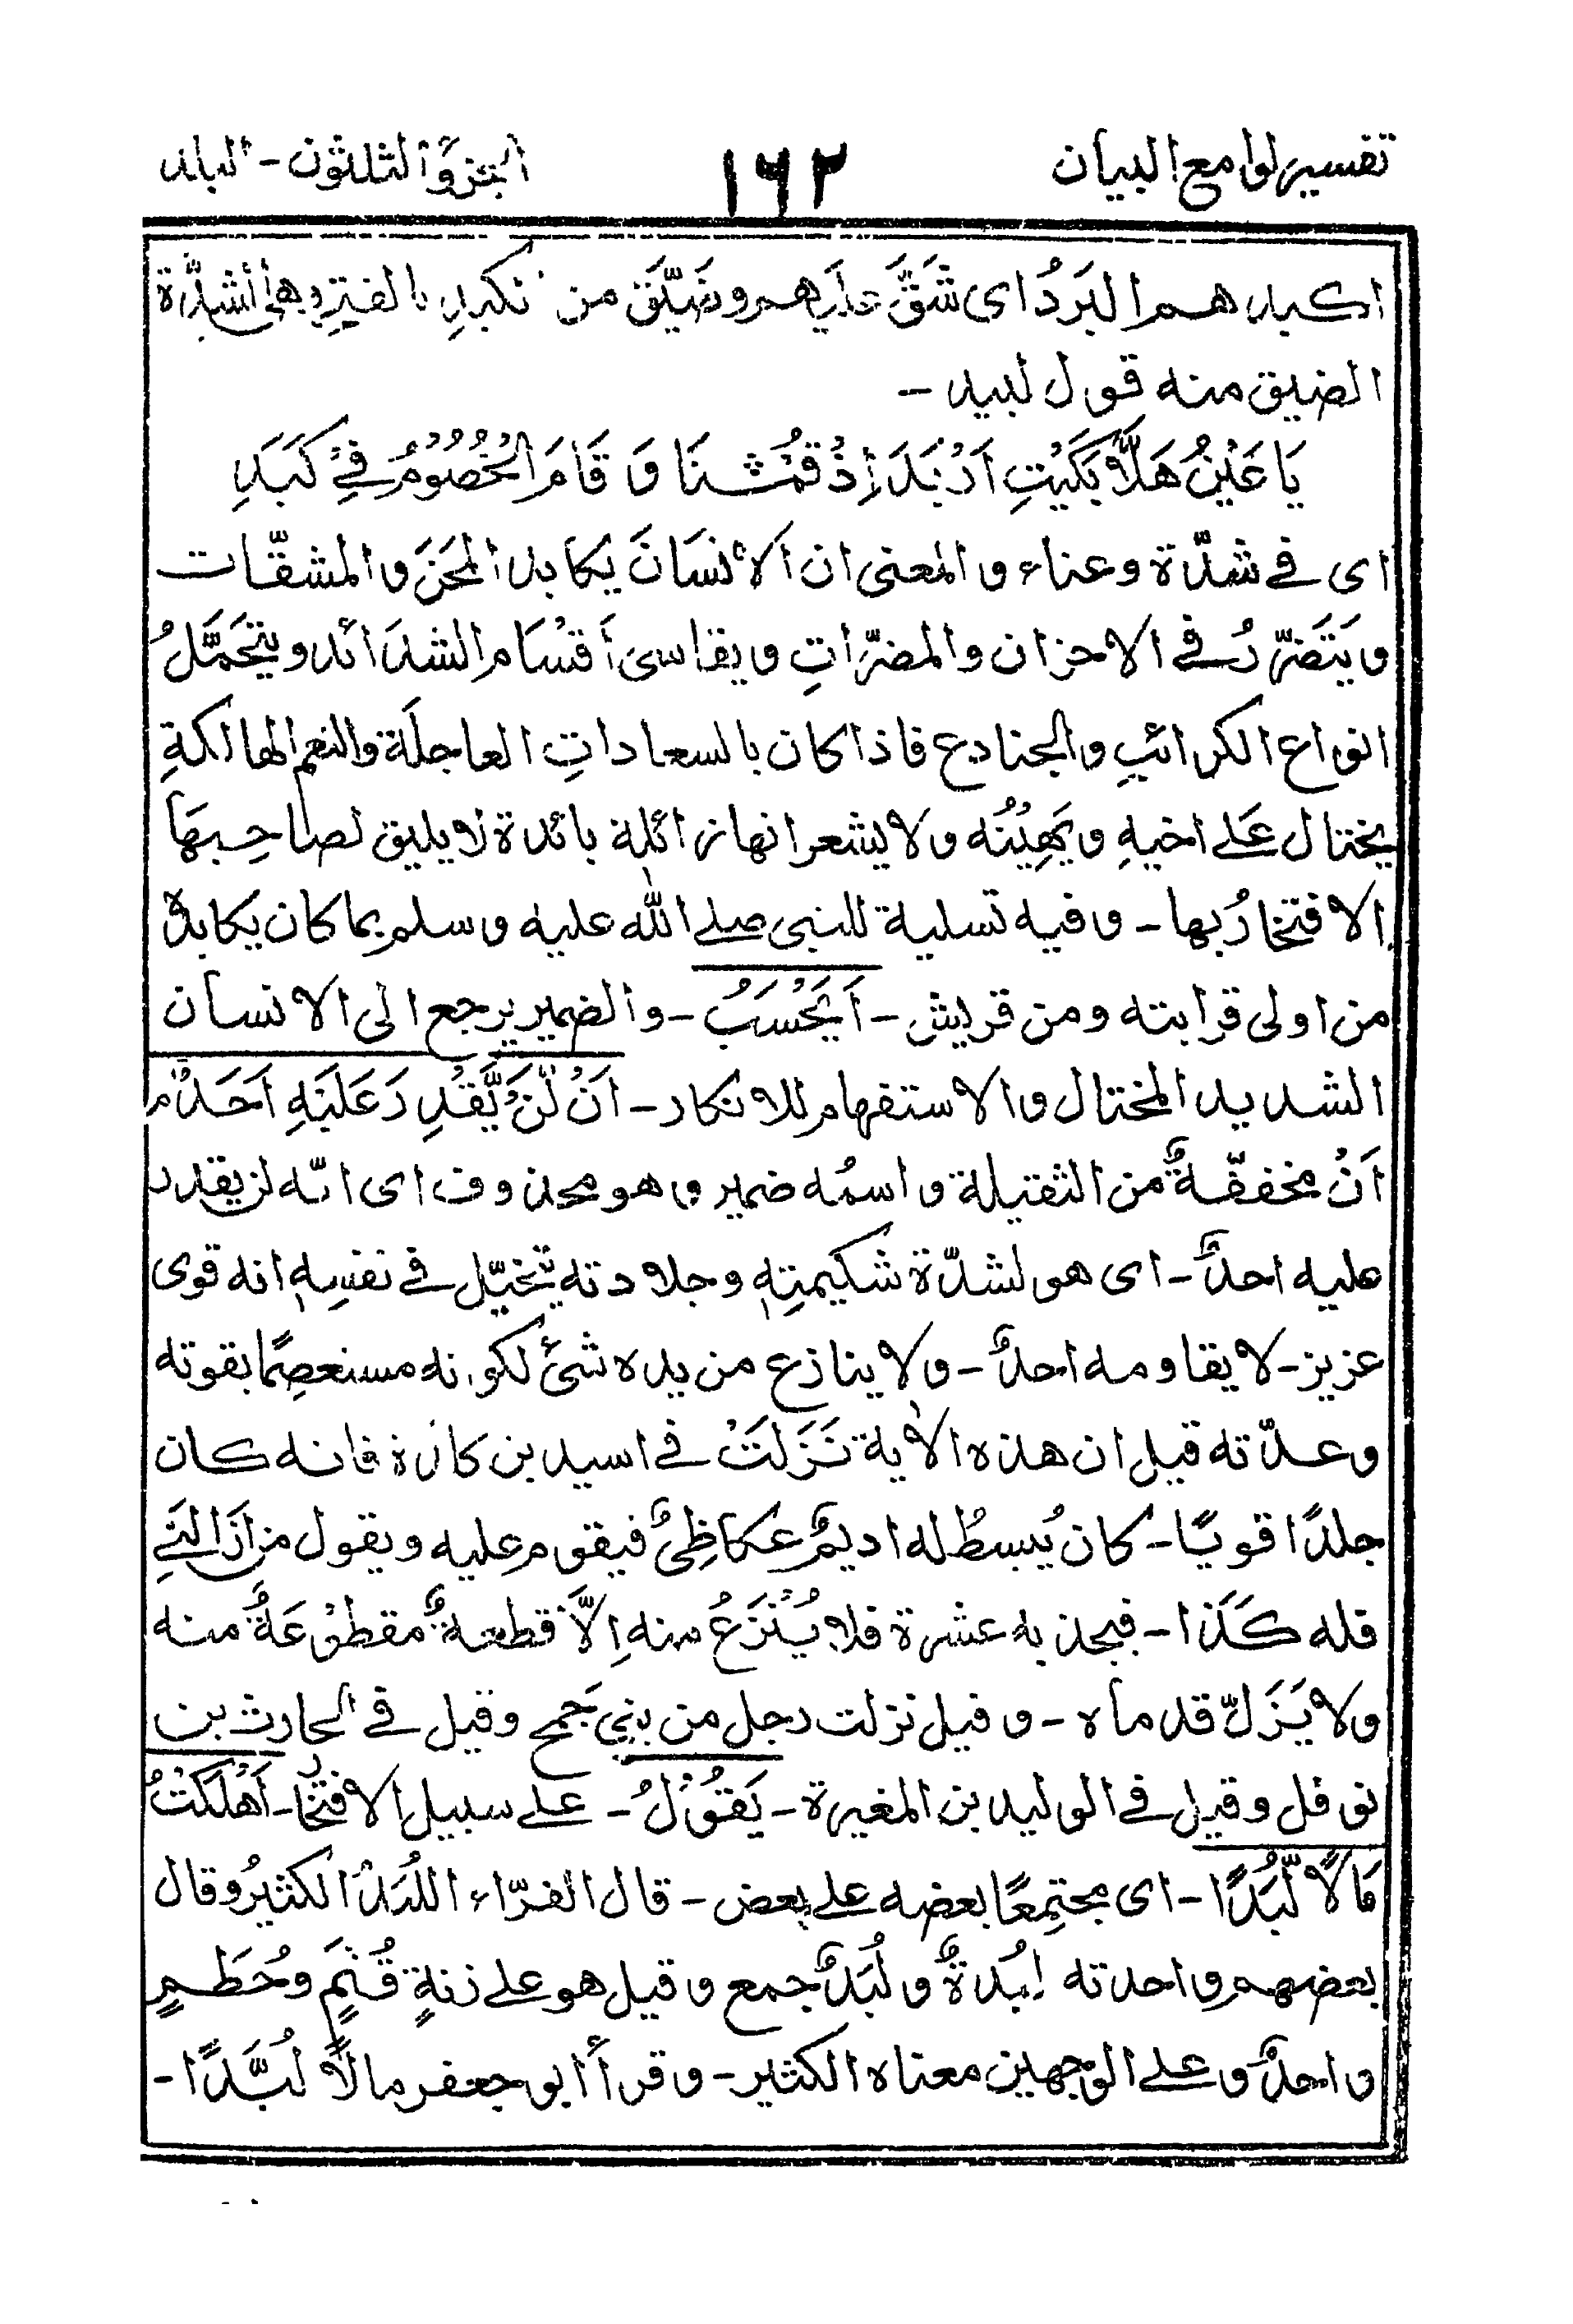 تفسير لوامع البيان ١٦٢ الجزؤ الثلثون - البلد
اكبادهم البَرَدُ اى شَقَّ عليهم وضَيَّقَ من تكبد بالفتح وهى أشدّة
الضيق منه قول لبيد -
يَا عَيْنُ هَلَّا بَكَيْتِ اَرْبَدَ إِذْ قُمْنَا وَ قَامَ الْخُصُوْمُ فِيْ كَبَدِ
اى فے شدّة وعناء و المعنى ان الانسَانَ يكابد المحَنَ و المشقّات
و يَتَضَرّرُ فے الاحزان والمضرّاتِ و يقاسى أقسَام الشدَائد ويتحَمَّلُ
انواع الكرائبِ و الجنادع فاذا كان بالسعاداتِ العاجلَة والنعم الهالكةِ
يختال عَلے اخيهِ و يُهِيْنُه ولا يشعر انها زائلة بائدة لا يليق لصاحِبهَا
الافتخارُ بها - و فيه تسلية للنبى صلے الله عليه و سلم بما كان يكابدهُ
من اولى قرابته ومن قريش - أَيَحْسَبُ - والضمير يرجع الى الانسان
الشديد المختال و الاستفهام للانكار - اَنْ لَّنْ يَّقْدِرَ عَلَيْهِ اَحَدٌ م
اَنْ مخففّةٌ من الثقيلة و اسمُه ضمير و هو محذوف اى انّه لن يقدر
عليه احدٌ - اى هو لشدّة شكيمتِهٖ وجلادته يتخيّل فے نفسِهٖ انه قوى
عزيز - لا يقاومه احدٌ - و لا ينازع من يده شئ لكونه مستعصِمًا بقوته
وعدّته قيل ان هذه الاٰية نَزَلَتْ فے اسيد بن كلدة فانه كان
جلدًا قويًّا - كان يُبسطُ له اديمٌ عكاظِىٌّ فيقوم عليه ويقول من ازالنے
فله كَذَا - فيجذبه عشرة فلا يُنْزَعُ منه إلَّا قطعةٌ مقطوْعَةٌ منه
ولا يَزَلّ قدماه - و قيل نزلت رجل من بنى جَمح وقيل فے الحارث بن
نوفل وقيل فے الوليد بن المغيرة - يَقُوْلُ - علے سبيل الافتخار - اَهْلَكْتُ
مَالًا لُّبَدًا - اى مجتمِعًا بعضه علے بعض - قال الفرّاء اللُبَدُ الكثيرُ وقال
بعضهم واحدته لبُدةٌ و لُبَدٌ جمع و قيل هو علے زنةِ قُثَمٍ وحُطَمٍ
واحدٌ و علے الوجهين معناه الكثير - و قرأ ابو جعفر مالًا لُبَّدًا -